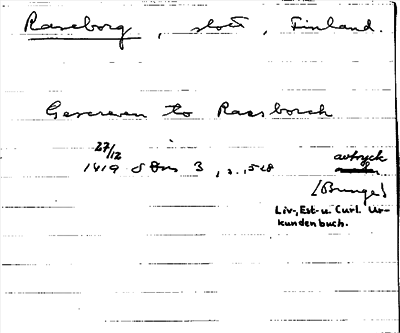 Raseborg, slott, Finland.
Gescreven to Raesborch
27/12
1419 SDns 3, s. 528
avtryck
[Bunge]
Liv-, Est- u. Curl. Ur-
kundenbuch.